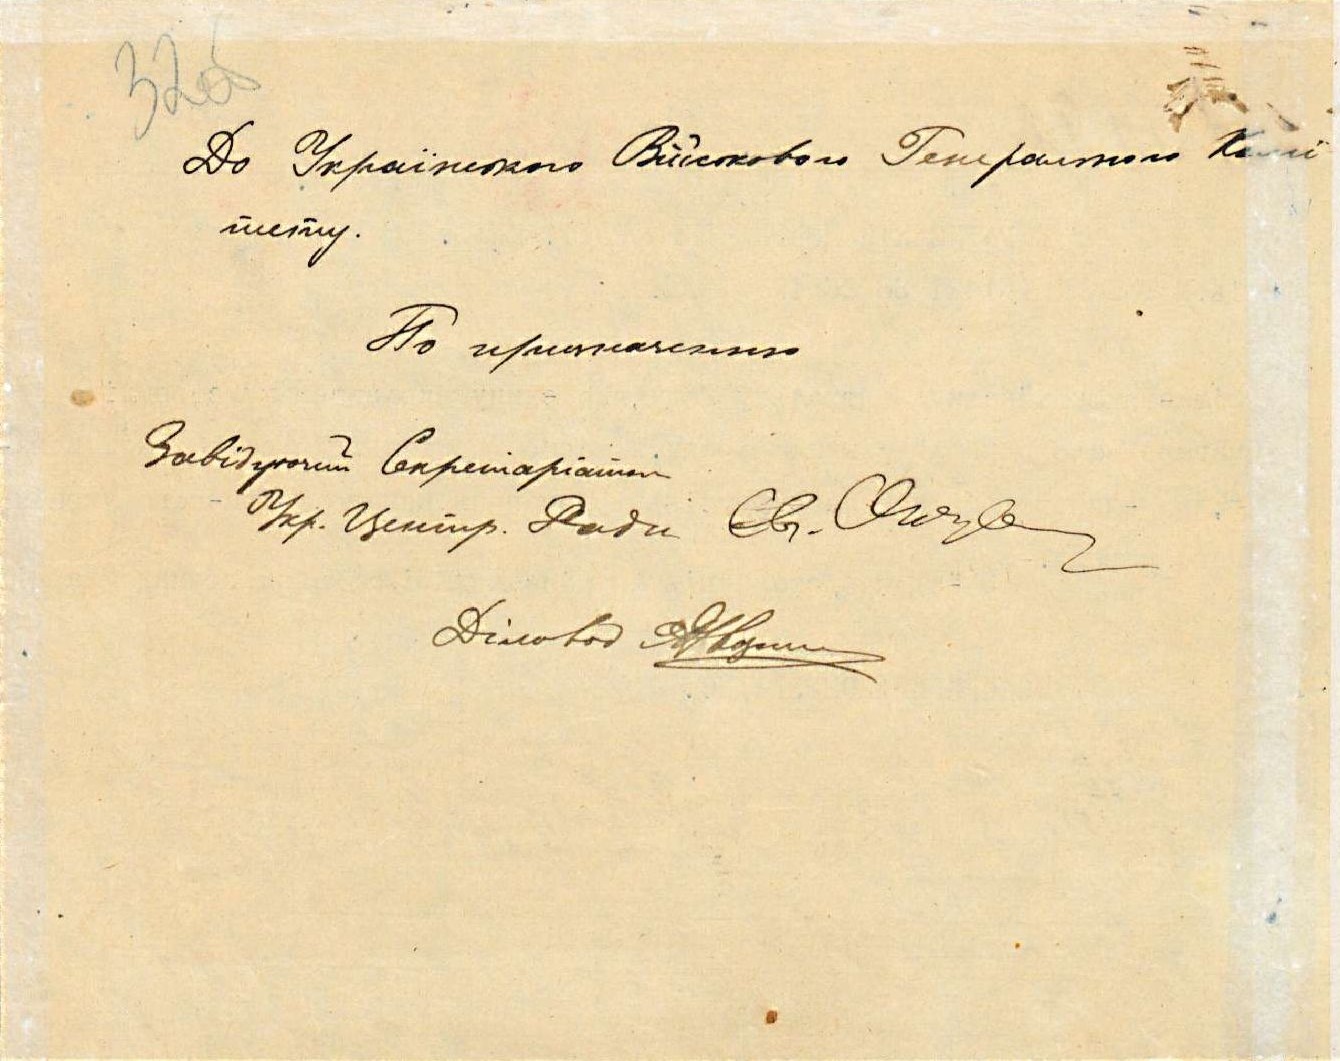 32об
До Українського Військового Генерального Комі
тету.
По призначенню
Завідуючий Секретаріатом
Укр. Центр. Ради Єв.
Діловод